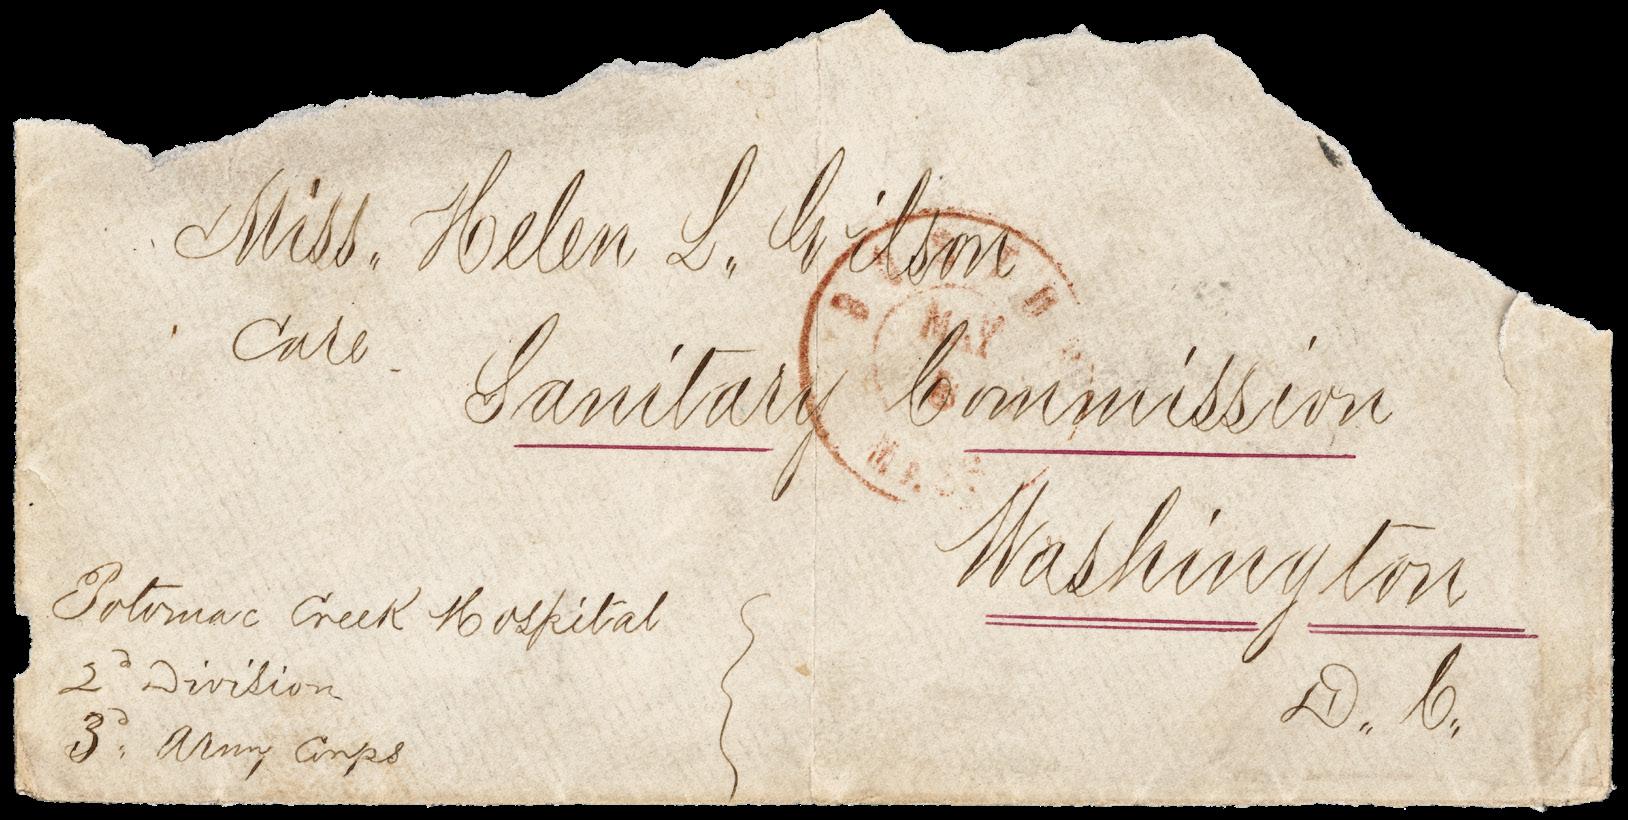 Miss. Helen L. Gilson
Care
Sanitary Commission
MAY
MASS
Washington
D. C.
Potomac Creek Hospital
2d Division
3d. Army Corps